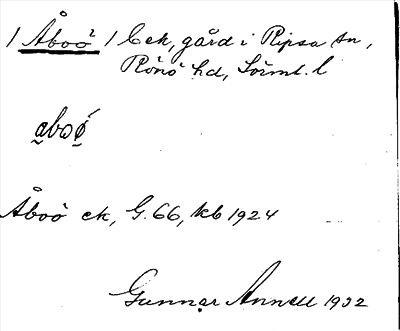 / Åboö / Eek, gård i Ripsa sn,
Rönö hd, Sörml. l
aboö́
Åboö ek, G. 66, kb 1924
Gunnar Annell 1932